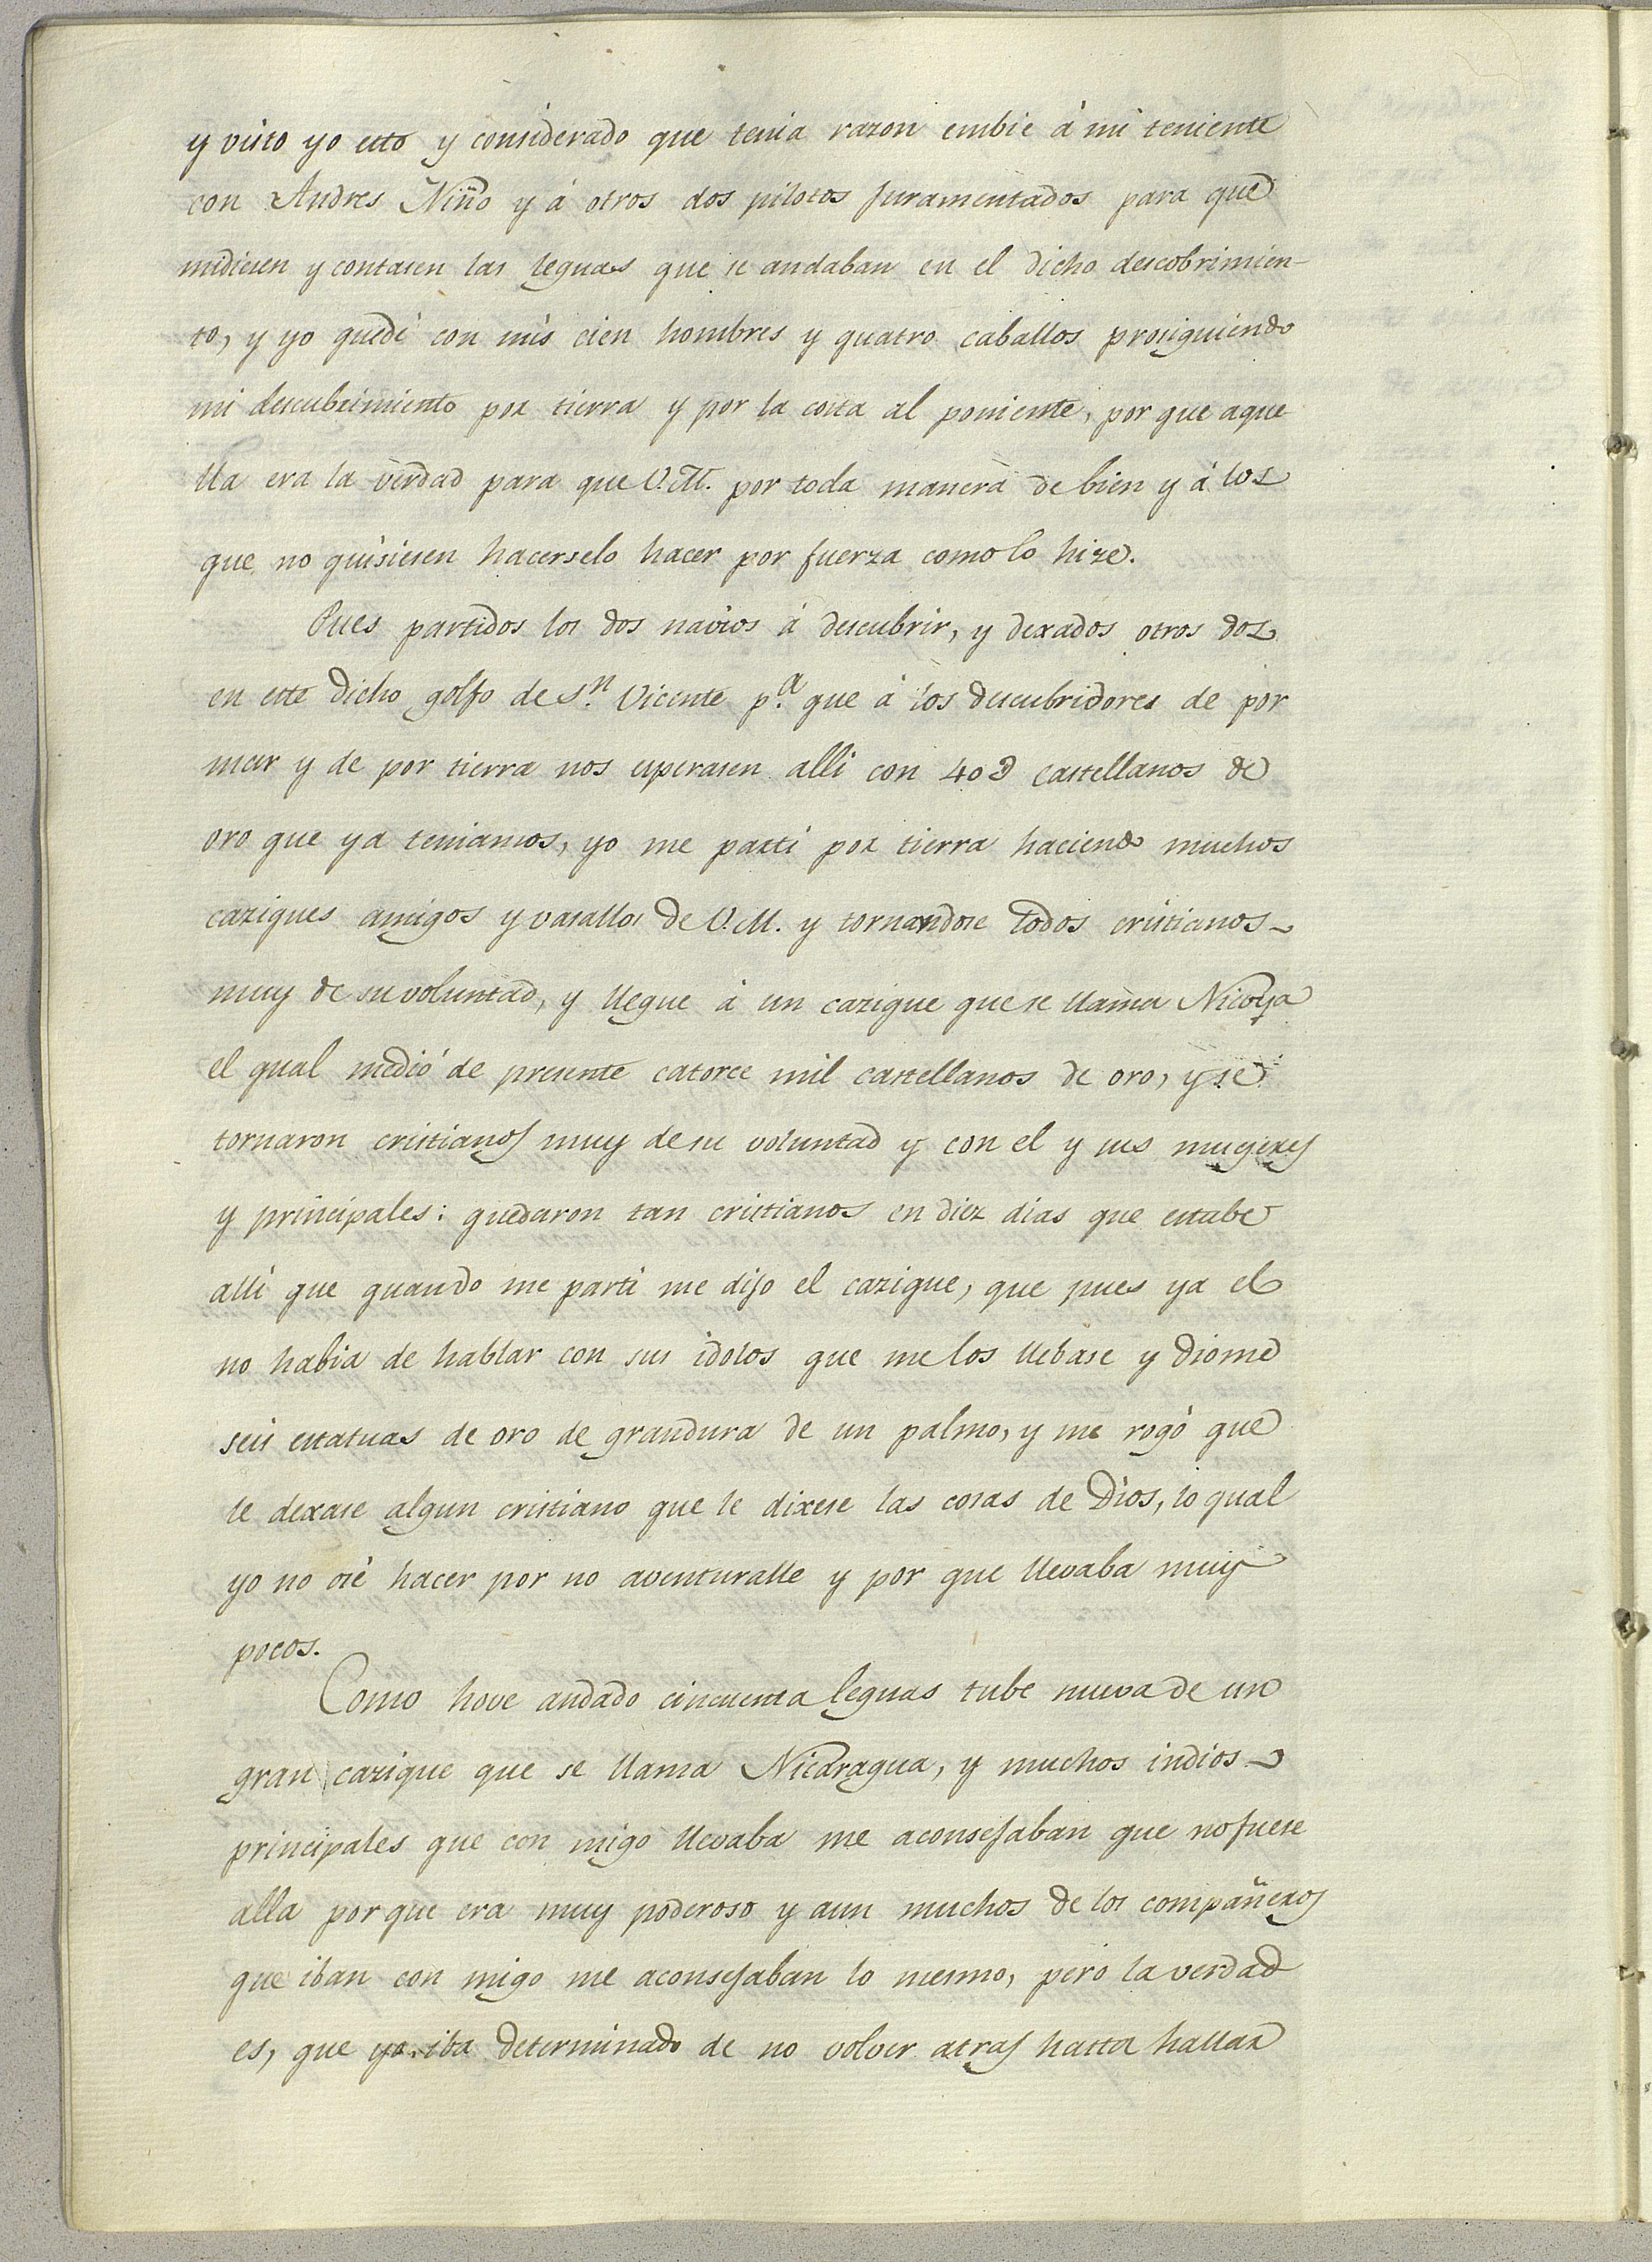 y visto yo esto y considerado que tenia razon embie á mi teniente
con Andres Niño y á otros dos pilotos juramentados para que
midiesen y contasen las leguas que se andaban en el dicho descobrimien-
to, y yo quedé con mis cien hombres y quatro caballos prosiguiendo
mi descubrimiento por tierra y por la costa al poniente, por que aque
lla era la verdad para que V.M. por toda manera de bien y á los
que no quisiesen hacerselo hacer por fuerza como lo hize.
Pues partidos los dos navios á descubrir, y dexados otros dos
en este dicho golfo de Sn. Vicente pa. que á los descubridores de por
mar y de por tierra nos esperasen alli con 40D castellanos de
oro que ya teniamos, yo me parti por tierra haciendo muchos
caziques amigos y vasallos de V.M. y tornandose todos cristianos
muy de su voluntad, y llegue á un cazique que se llama Nicoya
el qual me dió de presente catorce mil castellanos de oro, y se
tornaron cristianos muy de su voluntad y con el y sus mugeres
y principales: quedaron tan cristianos en diez dias que estube
alli que quando me parti me dijo el cazique, que pues ya el
no habia de hablar con sus idolos que me los llebase y diome
seis estatuas de oro de grandura de un palmo, y me rogó que
le dexase algun cristiano que le dixese las cosas de Dios, lo qual
yo no osé hacer por no aventuralle y por que llevaba muy
pocos.
Como hove andado cincuenta leguas tube nueva de un
gran cazique que se llama Nicaragua, y muchos indios
principales que con migo llevaba me aconsejaban que no fuese
alla porque era muy poderoso y aun muchos de los compañeros
que iban con migo me aconsejaban lo mesmo, pero la verdad
es, que yo iba determinado de no volver atras hasta hallar